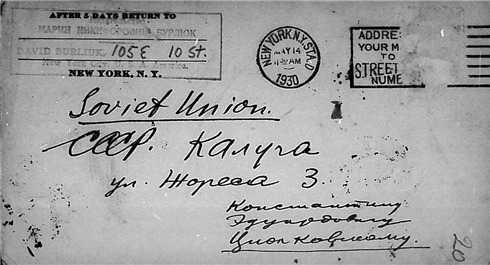 AFTER 5 DAYS RETURN TO
МАРИИ НИКИФОРОВНЕ БУРЛЮК
DAVID BURLIUK, 105 E 10 St.
New York City, U. S. A. America.
NEW YORK, N. Y.
NEW YORK, N.Y. STA. D
MAY 14
AM
1930
ADDRE
YOUR M
TO
STREET
NUMB
Soviet Union.
СССР. Калуга
ул. Жореса 3.
Константину
Эдуардовичу
Циолковскому.
20